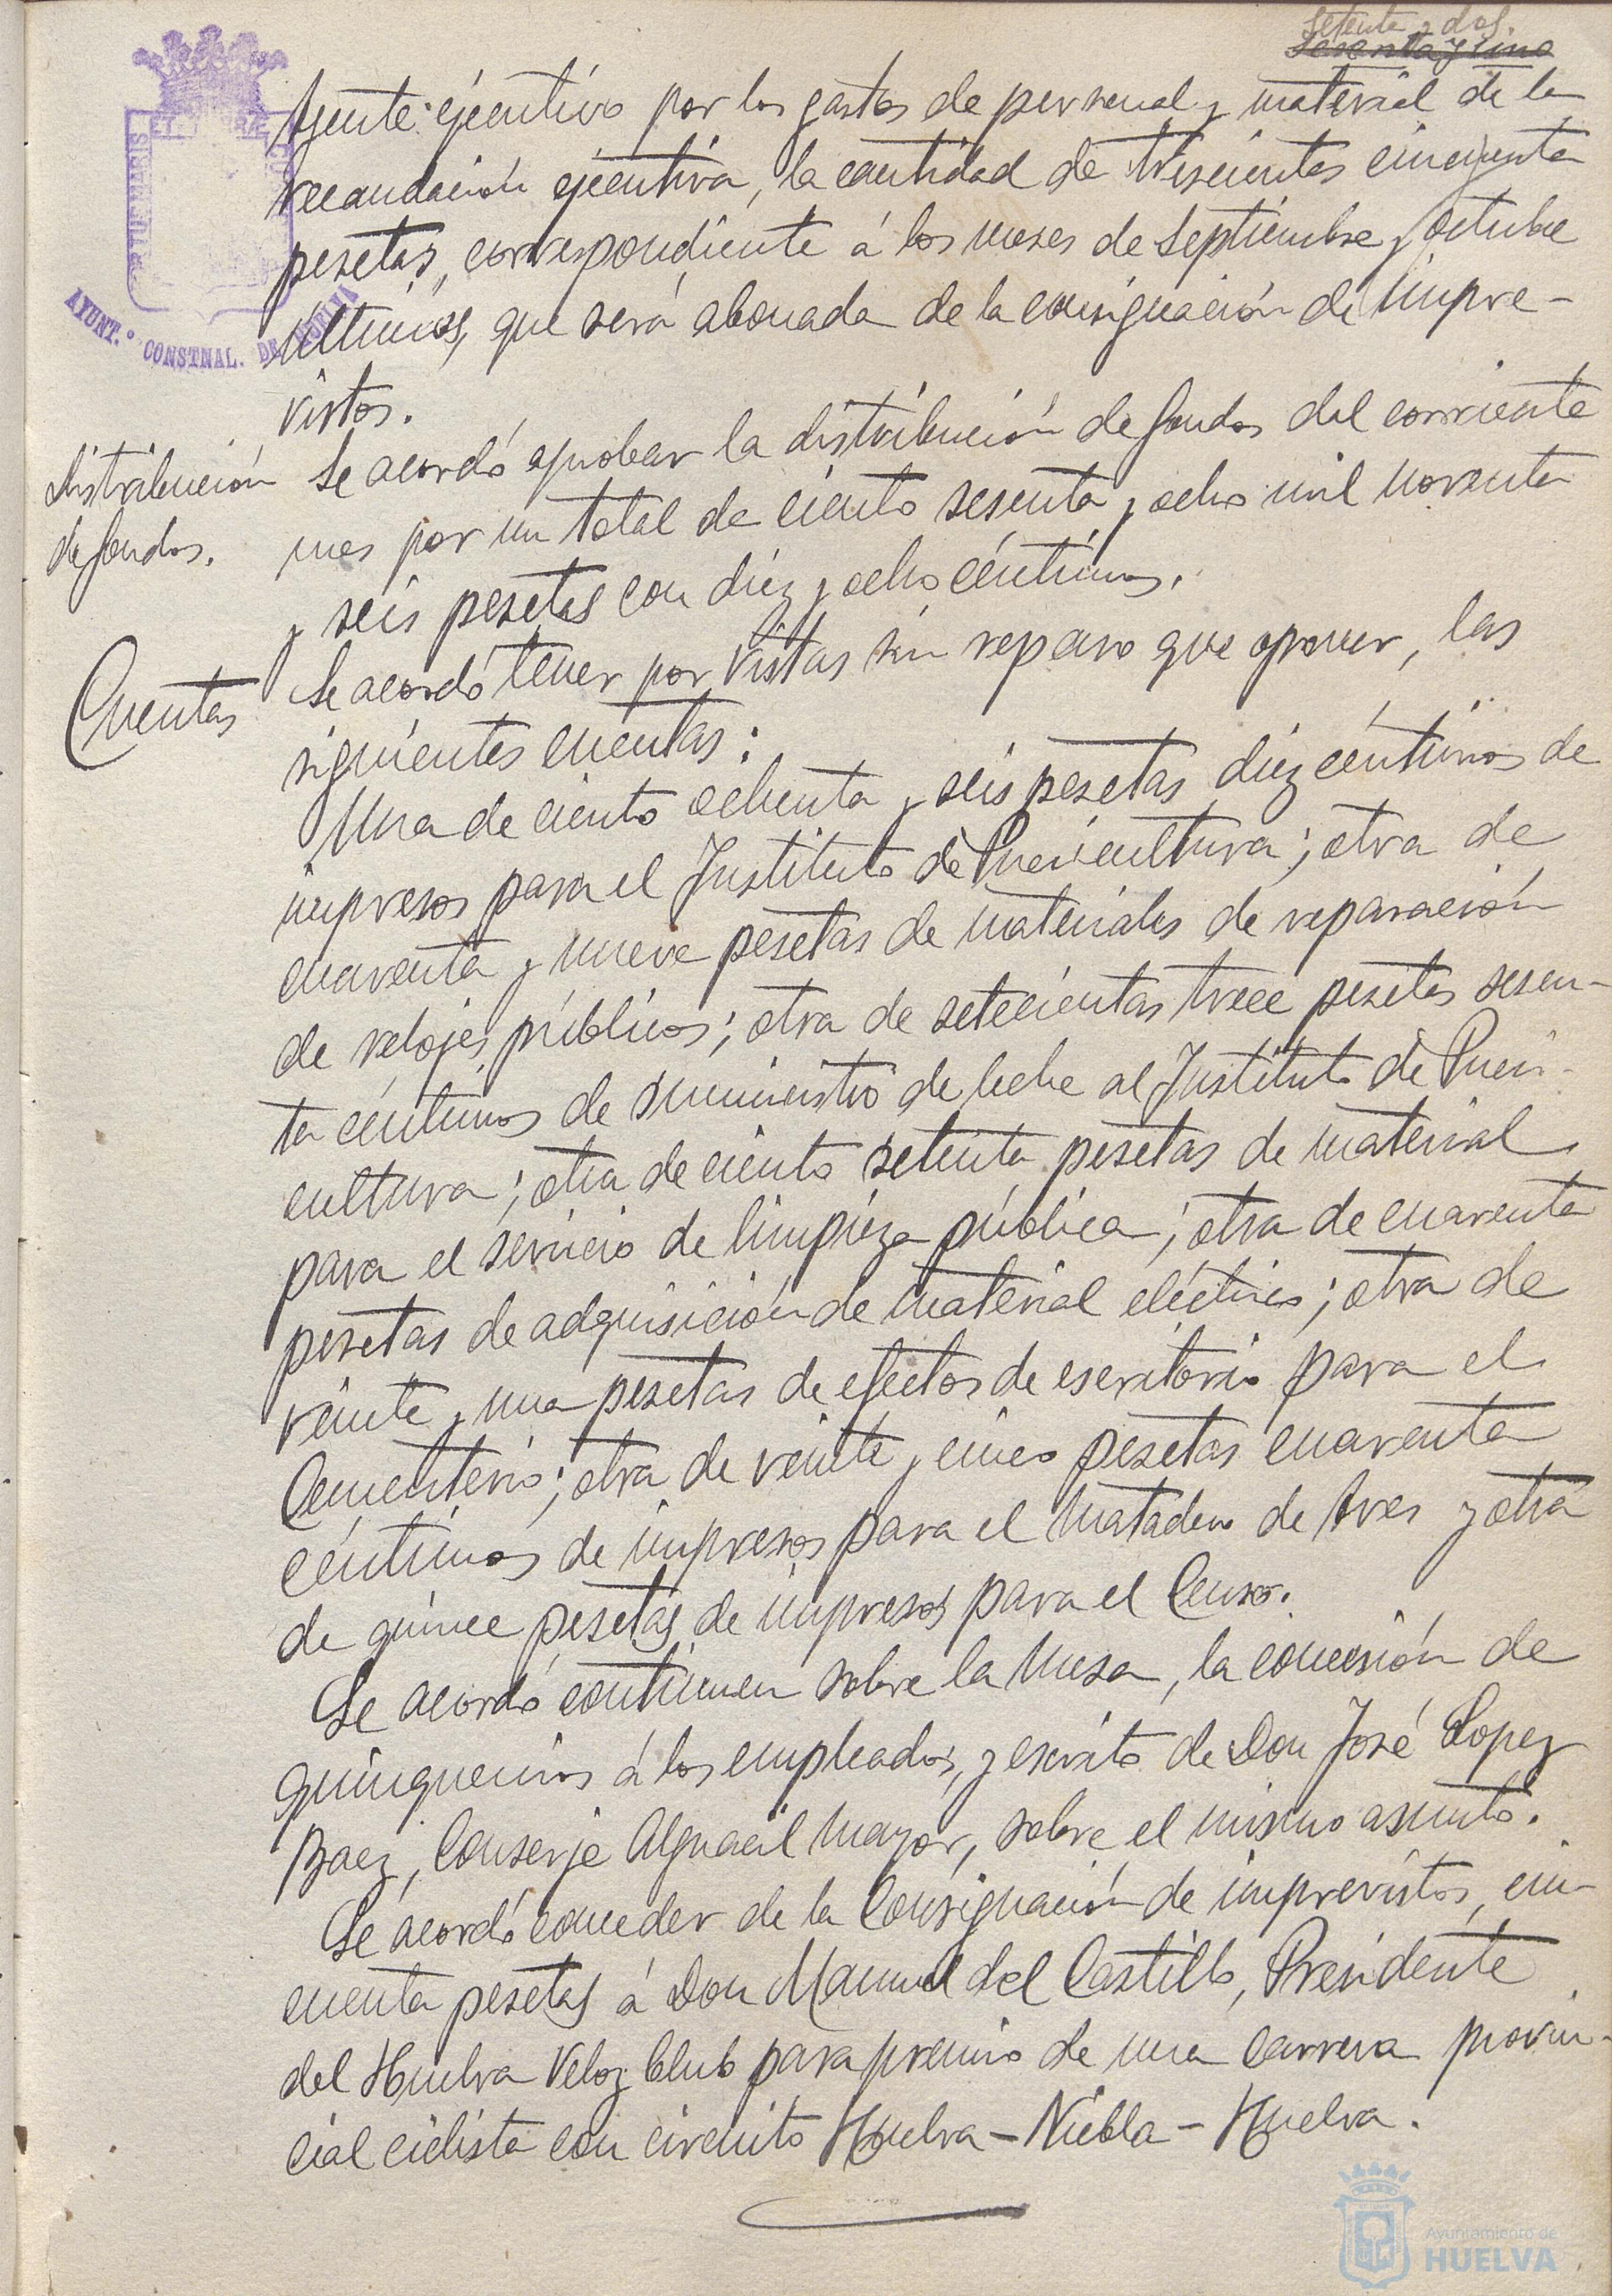 Setenta y dos.
Sesenta y uno
Agente ejecutivo por los gastos de personal y material de la
recaudación ejecutiva, la cantidad de trescientas cincuenta
pesetas, correspondiente á los meses de Septiembre y Octubre
últimos, que será abonada de la consignación de Impre-
vistos.
Distribución
de fondos.
Se acordó aprobar la distribución de fondos del corriente
mes por un total de ciento sesenta y ocho mil noventa
y seis pesetas con diez y ocho céntimos.
Cuentas
Se acordó tener por vistas sin reparo que oponer, las
siguientes cuentas:
Una de ciento ochenta y seis pesetas diez céntimos de
impresos para el Instituto de Puericultura; otra de
cuarenta y nueve pesetas de materiales de reparación
de relojes públicos; otra de setecientas trece pesetas sesen-
ta céntimos de suministro de leche al Instituto de Pueri-
cultura; otra de ciento setenta pesetas de material
para el servicio de limpieza pública; otra de cuarenta
pesetas de adquisición de material eléctrico; otra de
veinte y una pesetas de efectos de escritorio para el
Cementerio; otra de veinte y cinco pesetas cuarenta
céntimos de impresos para el Matadero de Aves y otra
de quince pesetas de impresos para el Censo.
Se acordó continuen sobre la Mesa, la concesión de
quinquenios á los empleados, y escrito de Don José Lopez
Baez, Conserje Alguacil Mayor, sobre el mismo asunto.
Se acordó conceder de la Consignación de imprevistos, cin-
cuenta pesetas á Don Manuel del Castillo, Presidente
del Huelva Veloz Club para premio de una Carrera provin-
cial ciclista con circuito Huelva - Niebla - Huelva.
AYUNT.º CONSTNAL. DE HUELVA
Ayuntamiento de
HUELVA